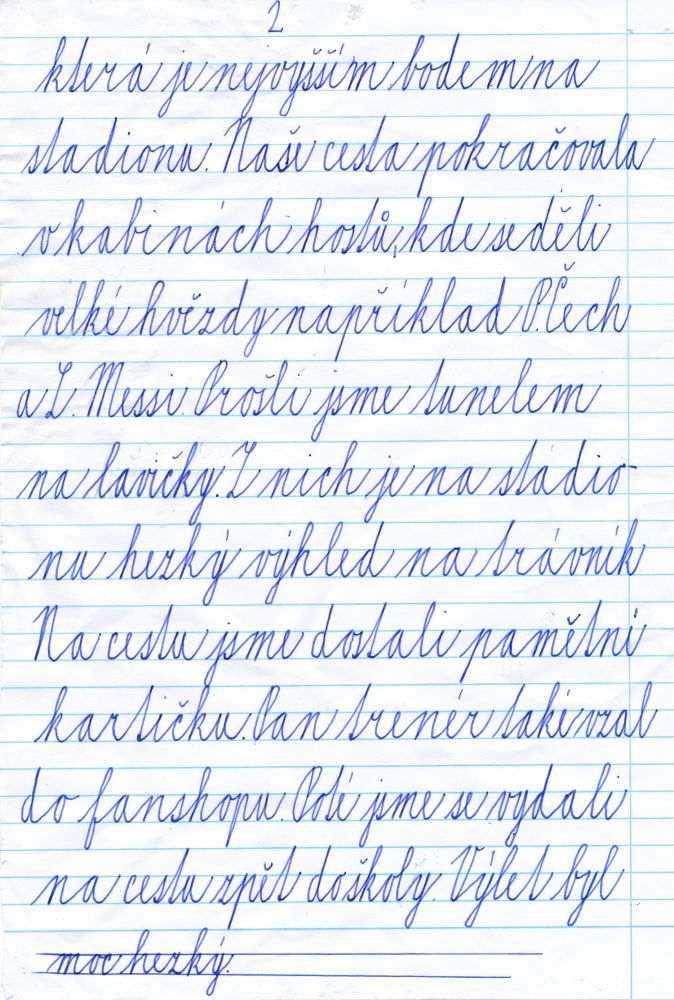 2
která je nejvyšším bodem na
stadionu. Naše cesta pokračovala
v kabinách hostů, kde seděli
velké hvězdy například P. Čech
a L. Messi. Prošli jsme tunelem
na lavičky. Z nich je na stadio-
nu hezký výhled na trávník
Na cestu jsme dostali pamětní
kartičku. Pan trenér také vzal
do fanshopu. Poté jsme se vydali
na cestu zpět do školy. Výlet byl
moc hezký.